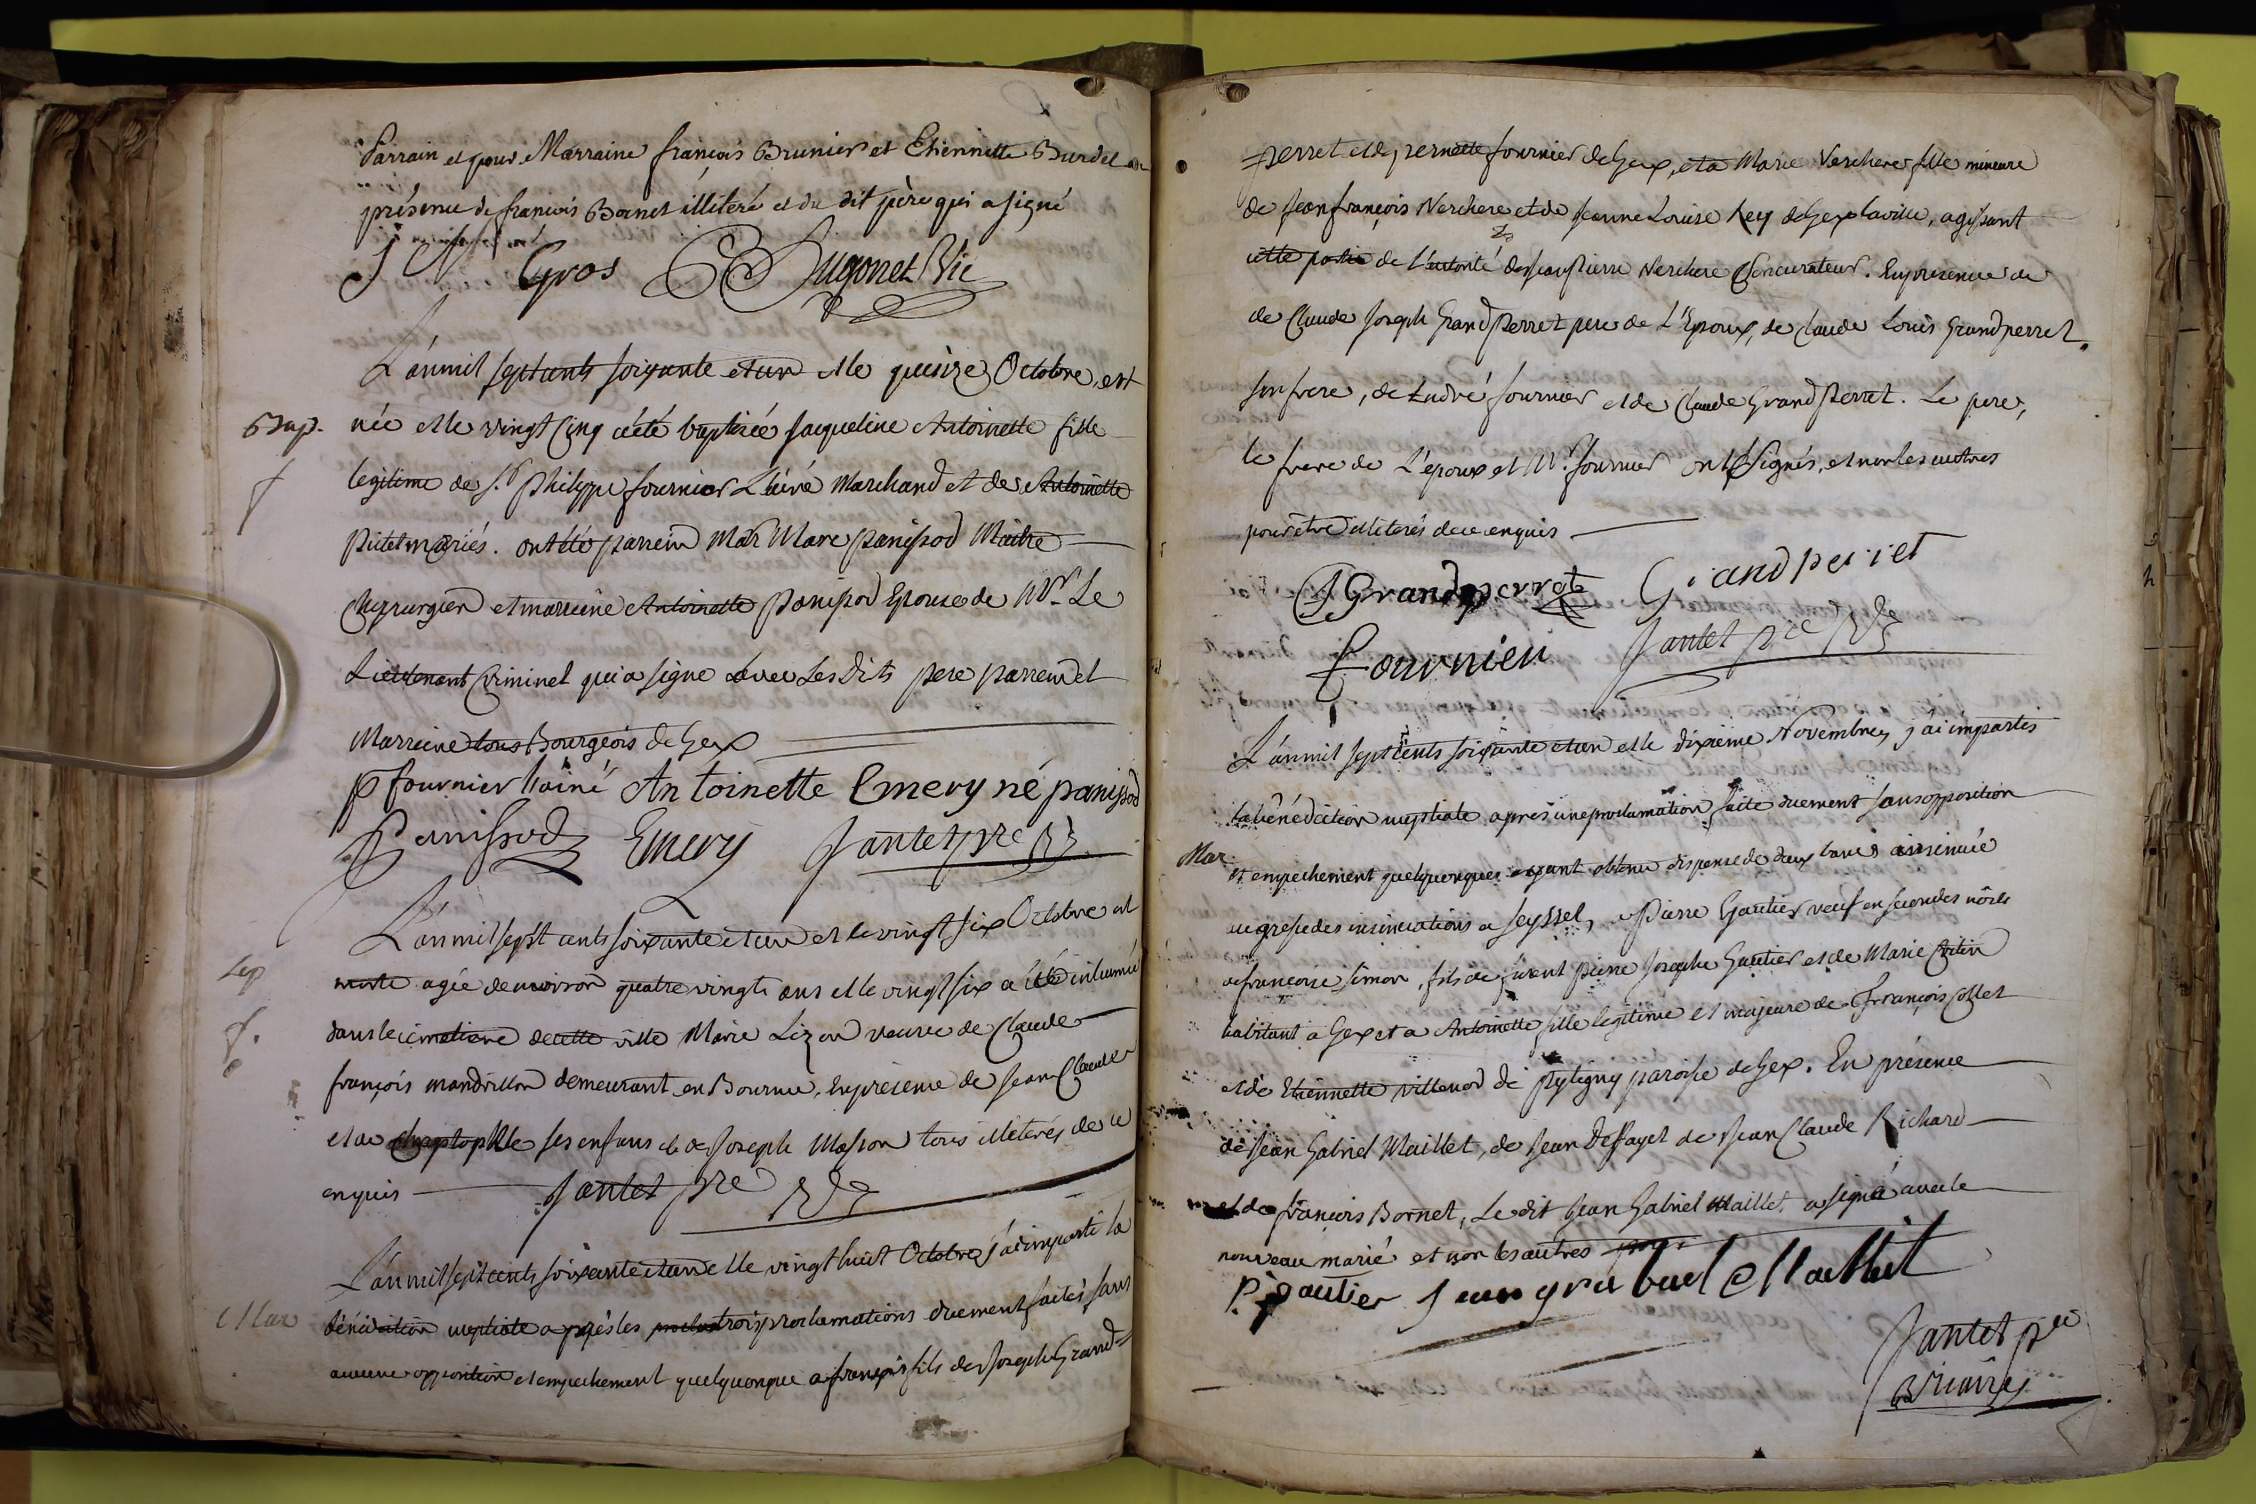 Parrain et pour Marraine françois Brunier et Etiennette Burdet en
présence de françois Bornet illiteré et du dit père qui a signé
Gros Hugonet Vic
L'an mil sept cents soixante et un et le quinze Octobre est
Bap. née et le vingt cinq a été baptisée Jacqueline Antoinette fille
f
legitime de s.r Philippe fournier L'aîné Marchand et de Antoinette
Pictet mariés. ont été parrein Marc panissod Maitre
Chyrurgien et marreine Antoinette Panissod Epouse de Mr. Le
Lieutenant Criminel qui a signé avec Les dits pere parrein et
Marreine tous Bourgeois de Gex
p fournier l'ainé Antoinette Emery né panissod
Panissod Emery Jantet pre Vic
L'an mil sept cents soixante et un et le vingt six Octobre est
Sep morte agée denviron quatre vingts ans et le vingt six a été inhumée
f.
dans le cimetiere de cette ville Marie Lizon veuve de Claude
françois mandrillon demeurant en Bournu. En présence de Jean Claude
et de Chrystophle ses enfans et de Joseph Masson tous illeterés de ce
enquis Jantet pre Vic
L'an mil sept cents soixante et un et le vingt huit Octobre j'ai imparti la
Mar bénédiction nuptiale après les trois proclamations duement faites sans
aucune opposition et empechement quelquonque a françois fils de Joseph Grand
perret et de pernette fournier de Gex, et a Marie Verchere fille mineure
de Jean françois Verchere et de Jeanne Louise Rey de Gex la ville, agissant
cette partie de L'autorité de Jean Pierre Verchere son curateur. En presence de
de Claude Joseph Grand Perret pere de L'Epoux, de Claude Louis Grandperret
son frere, de André fournier et de Claude Grand Perret. Le pere,
le frere de L'epoux et Mr. fournier ont signés, et non les autres
pour être illiterés de ce enquis
Grandperret Grandperret
fournier Jantet pre Vic
L'an mil sept cents soixante et un et le dixieme Novembre, j'ai impartis
la bénédiction nuptiale apres une proclamation faite duement sans opposition
Mar et empechement quelquonques ayant obtenu dispense de deux bancs insinuée
au grefe des insinuations a Seyssel, a Pierre Gautier veuf en secondes nôces
de françoise Simon, fils de feu Pierre Joseph Gautier et de Marie
habitant a Gex et a Antoinette fille legitime et majeure de François Collet
et de Etiennette Villenod de Pytegny paroisse de Gex. En présence
de Jean Gabriel Maillet, de Jean Deffayet de Jean Claude Richard
et de françois Bornet, Le dit Jean Gabriel Maillet a signé avec le
nouveau marié et non les autres
P. gautier Jean grabriel Maillet
Jantet pre
Vicaire